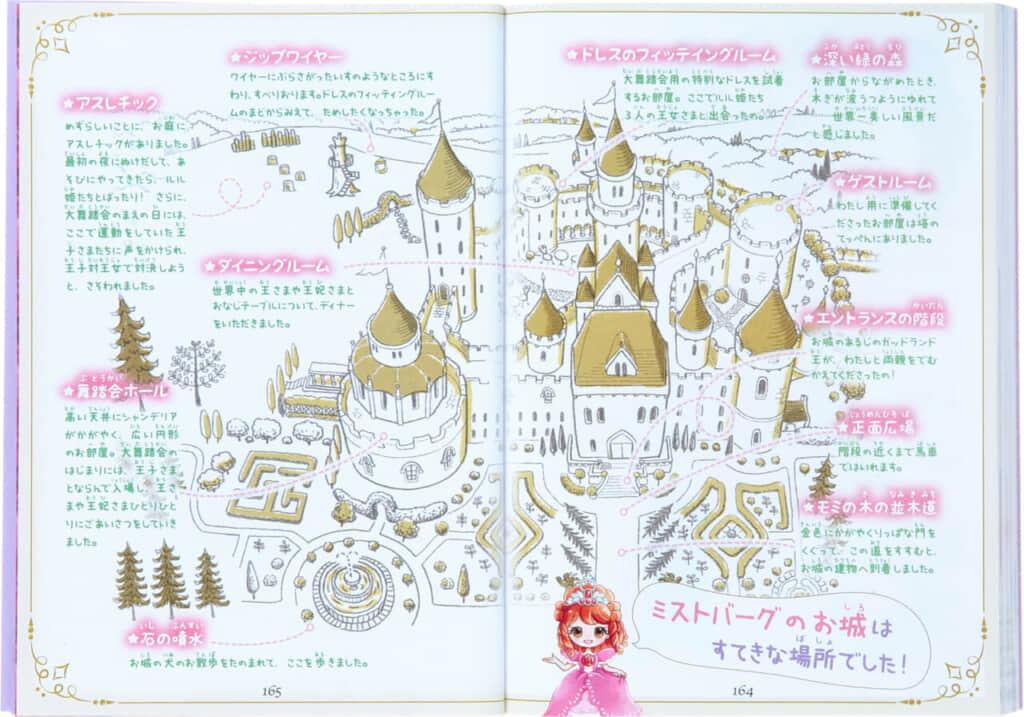 ★ドレスのフィッティングルーム
大舞踏会用の特別なドレスを試着
するお部屋。ここでルル姫たち
3人の王女さまと出会ったの。
★深い緑の森
お部屋からながめたとき、
木ぎが波うつようにゆれて
世界一美しい風景だ
と感じました。
★ゲストルーム
わたし用に準備してく
ださったお部屋は塔の
てっぺんにありました。
★エントランスの階段
お城のあるじのガッドランド
王が、わたしと両親をでむ
かえてくださったの!
★正面広場
階段の近くまで馬車
ではいれます。
★モミの木の並木道
金色にかがやくりっぱな門を
くぐって、この道をすすむと、
お城の建物へ到着しました。
ミストバーグのお城は
すてきな場所でした!
164
★ジップワイヤー
ワイヤーにぶらさがったいすのようなところにす
わり、すべりおります。ドレスのフィッティングルー
ムのまどからみえて、ためしたくなっちゃった。
★アスレチック
めずらしいことに、お庭に
アスレチックがありました。
最初の夜にぬけだして、あ
そびにやってきたら、ルル
姫たちとばったり! さらに、
大舞踏会のまえの日には、
ここで運動をしていた王
子さまたちに声をかけられ、
王子対王女で対決しよう
と、さそわれました。
★ダイニングルーム
世界中の王さまや王妃さまと
おなじテーブルについて、ディナー
をいただきました。
★舞踏会ホール
高い天井にシャンデリア
がかがやく、広い円形
のお部屋。大舞踏会の
はじまりには、王子さま
とならんで入場し、王さ
まや王妃さまひとりひと
りにごあいさつをしていき
ました。
★石の噴水
お城の犬のお散歩をたのまれて、ここを歩きました。
165